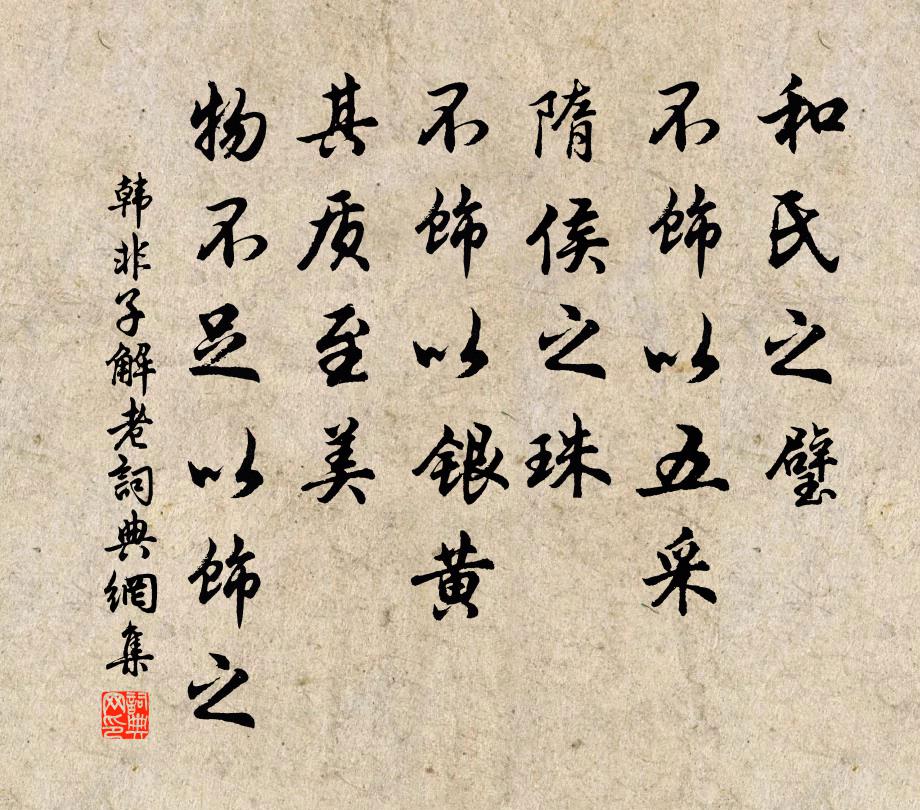 和氏之璧
不饰以五采
隋侯之珠
不饰以银黄
其质至美
物不足以饰之
韩非子解老詞典網集
詞典网印